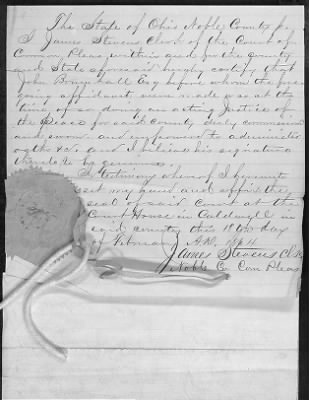 The State of Ohio Noble County ss
I James Stevens Clerk of the Court of
Common Pleas within and for the County
and State aforesaid hereby certify that
John Esq before whom the fore
going affidavits were made was at the
time of so doing an acting Justice of
the Peace for said County duly commissioned
and sworn and empowered to administer
oaths &c. and I believe his signature
thereto to be genuine
In testimony whereof I hereunto
set my hand and affix the
seal of said Court at the
Court House in Caldwell in
said county this 18th day
of February A.D.
James Stevens Clk
Noble Co Com Pleas